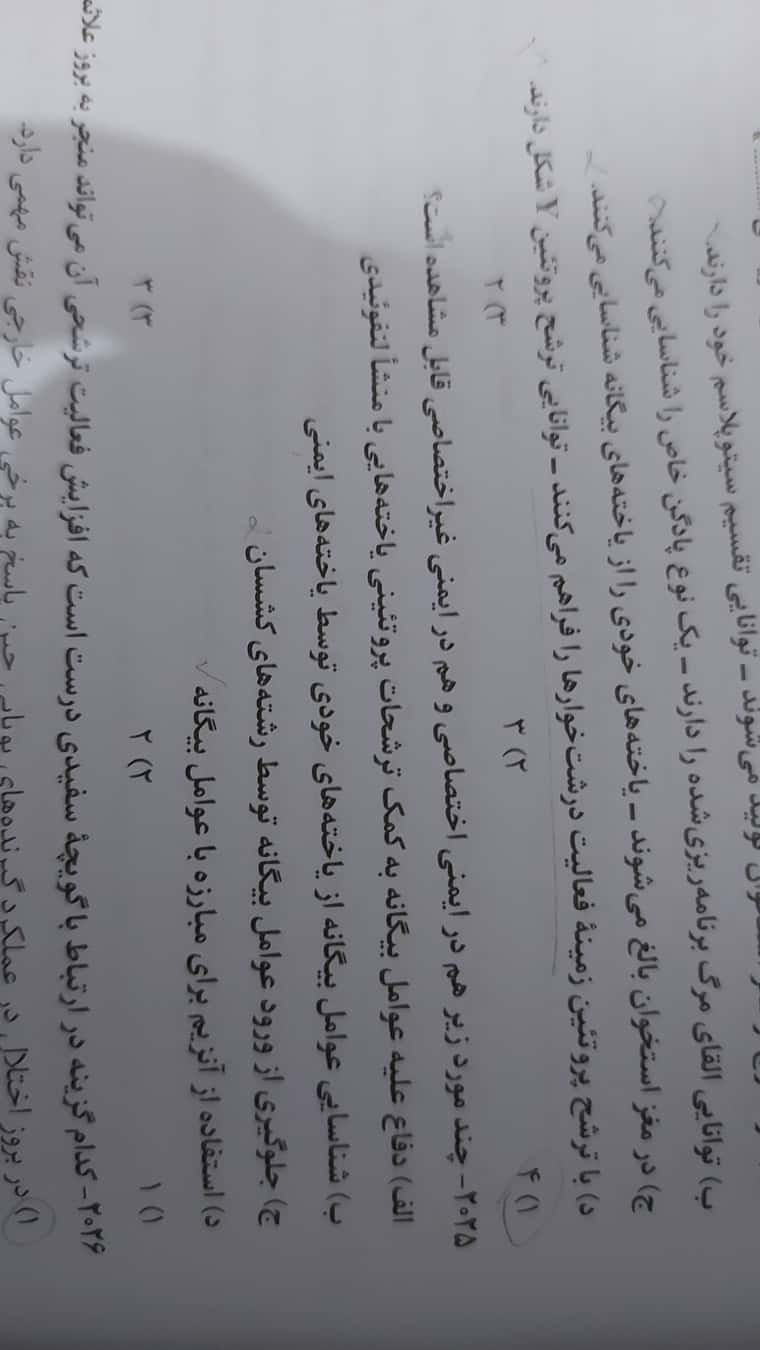 تولید می‌شوند - توانایی تقسیم سیتوپلاسم خود را دارند.
ب) توانایی القای مرگ برنامه‌ریزی‌شده را دارند - یک نوع پادگن خاص را شناسایی می‌کنند.
ج) در مغز استخوان بالغ می‌شوند - یاخته‌های خودی را از یاخته‌های بیگانه شناسایی می‌کنند.
د) با ترشح پروتئین زمینهٔ فعالیت درشت‌خوارها را فراهم می‌کنند - توانایی ترشح پروتئین Y شکل دارند.
۱) ۴ ۲) ۳ ۳) ۲
۲۰۲۵- چند مورد زیر هم در ایمنی اختصاصی و هم در ایمنی غیراختصاصی قابل مشاهده است؟
الف) دفاع علیه عوامل بیگانه به کمک ترشحات پروتئینی یاخته‌هایی با منشأ لنفوئیدی
ب) شناسایی عوامل بیگانه از یاخته‌های خودی توسط یاخته‌های ایمنی
ج) جلوگیری از ورود عوامل بیگانه توسط رشته‌های کشسان
د) استفاده از آنزیم برای مبارزه با عوامل بیگانه
۱) ۱ ۲) ۲ ۳) ۳
۲۰۲۶- کدام گزینه در ارتباط با گویچهٔ سفیدی درست است که افزایش فعالیت ترشحی آن می‌تواند منجر به بروز
۱) در بروز اختلال در عملکرد گیرنده‌های بویایی حین پاسخ به برخی عوامل خارجی نقش مهمی دارد.